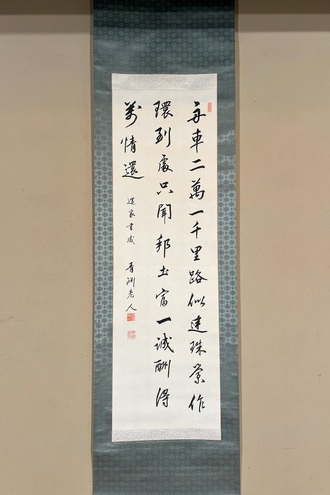 舟車二萬一千里路似連珠縈作
環到處只聞邦土富一誠酬得
萬情還
還家書感 青淵老人